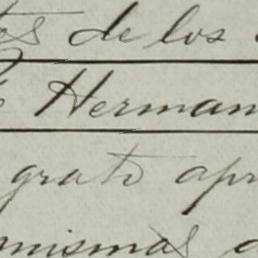 de los
Herman
grato apr
mismas